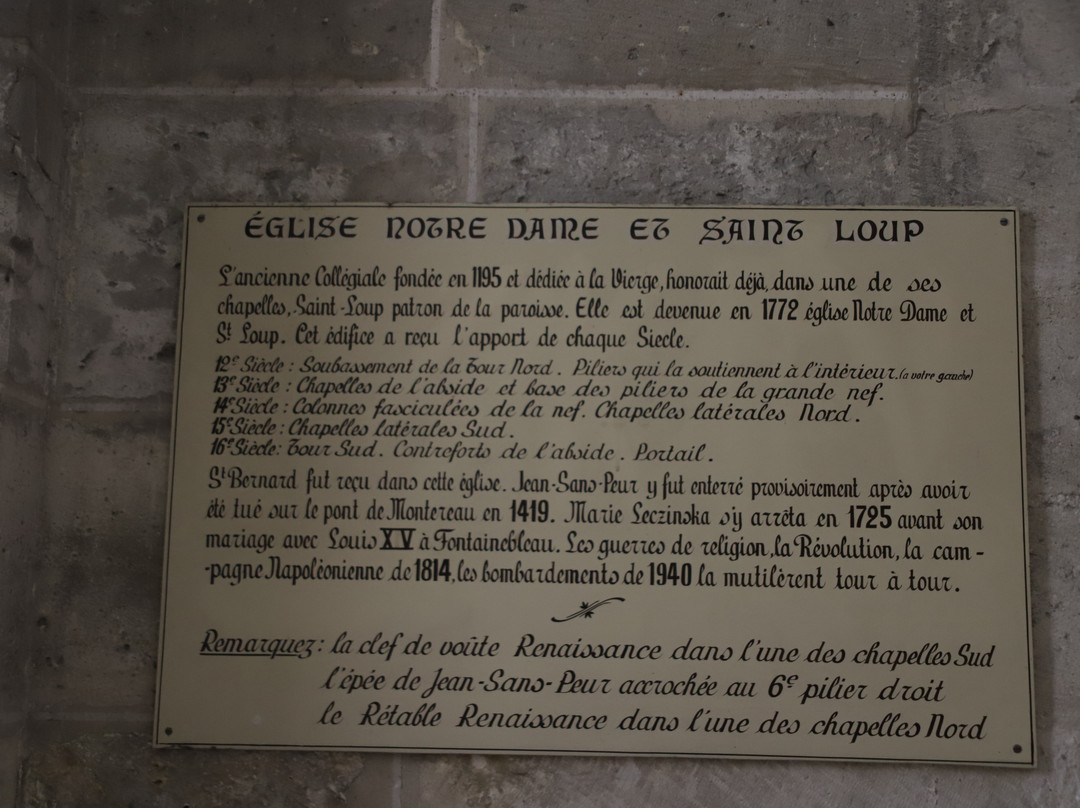 ÉGLISE NOTRE DAME ET SAINT LOUP
L'ancienne Collégiale fondée en 1195 et dédiée à la Vierge, honorait déjà, dans une de ses
chapelles, Saint-Loup patron de la paroisse. Elle est devenue en 1772 église Notre Dame et
St Loup. Cet édifice a reçu l'apport de chaque Siecle.
12e Siècle : Soubassement de la Tour Nord. Piliers qui la soutiennent à l'intérieur. (a votre gauche)
13e Siècle : Chapelles de l'abside et base des piliers de la grande nef.
14e Siècle : Colonnes fasciculées de la nef. Chapelles latérales Nord.
15e Siècle : Chapelles latérales Sud.
16e Siècle : Tour Sud. Contreforts de l'abside. Portail.
St Bernard fut reçu dans cette église. Jean-Sans-Peur y fut enterré provisoirement après avoir
été tué sur le pont de Montereau en 1419. Marie Leczinska s'y arrêta en 1725 avant son
mariage avec Louis XV à Fontainebleau. Les guerres de religion, la Révolution, la cam-
-pagne Napoléonienne de 1814, les bombardements de 1940 la mutilèrent tour à tour.
Remarquez : la clef de voûte Renaissance dans l'une des chapelles Sud
l'épée de Jean-Sans-Peur accrochée au 6e pilier droit
le Rétable Renaissance dans l'une des chapelles Nord